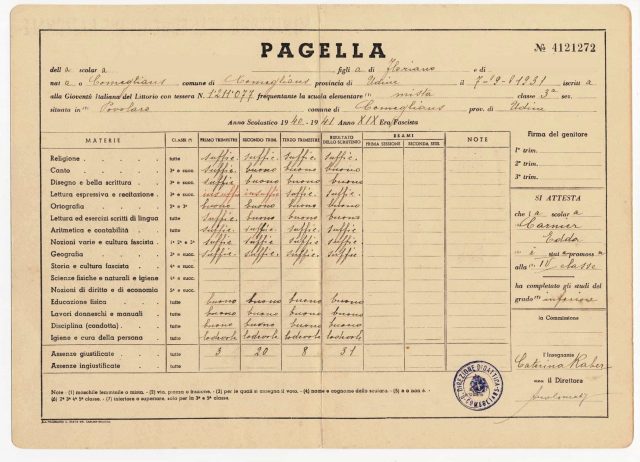 PAGELLA
№ 4121272
dell a scolar a figli a di Floriano e di
nat a a Comeglians comune di Comeglians provincia di Udine il iscritt a
alla Gioventù Italiana del Littorio con tessera N. frequentante la scuola elementare mista classe 3ª sez.
situata in Povolaro comune di Comeglians prov. di Udine
Anno Scolastico 1940-1941 Anno XIX Era Fascista
MATERIE CLASSE PRIMO TRIMESTRE SECONDO TRIM. TERZO TRIMESTRE RISULTATO DELLO SCRUTINIO ESAMI PRIMA SESSIONE SECONDA SESS. NOTE
Religione tutte suffic. suffic. suffic. suffic.
Canto 3ª e succ. suffic. buono buono buono
Disegno e bella scrittura tutte suffic. buono buono buono
Lettura espressiva e recitazione 3ª e succ. insuffic. insuffic. suffic. suffic.
Ortografia buono buono buono buono
Lettura ed esercizi scritti di lingua tutte suffic. buono buono buono
Aritmetica e contabilità tutte suffic. suffic. suffic. suffic.
Nozioni varie e cultura fascista suffic. suffic. suffic. suffic.
Geografia suffic. suffic. suffic. suffic.
Storia e cultura fascista
Scienze fisiche e naturali e igiene
Nozioni di diritto e di economia
Educazione fisica tutte buono buono buono buono
Lavori donneschi e manuali tutte buono buono buono buono
Disciplina (condotta) tutte buono buono buono buono
Igiene e cura della persona tutte lodevole lodevole lodevole lodevole
Assenze giustificate tutte 3 20 8 31
Assenze ingiustificate tutte
Note: (1) maschile femminile o mista. - (2) via, piazza o frazione. - (3) per le quali si assegna il voto. - (4) nome e cognome dello scolaro. - (5) è o non è.
(6) 2ª 3ª 4ª 5ª classe. - (7) inferiore o superiore, solo per la 3ª e 5ª classe.
Firma del genitore
1º trim.
2º trim.
3º trim.
SI ATTESTA
che l a scolar a
Carnier
Edda
è stat a promossa
alla IV classe
ha completato gli studi del
grado inferiore
la Commissione
l'Insegnante
Caterina Raber
Il Direttore
DIREZIONE DIDATTICA COMEGLIANS